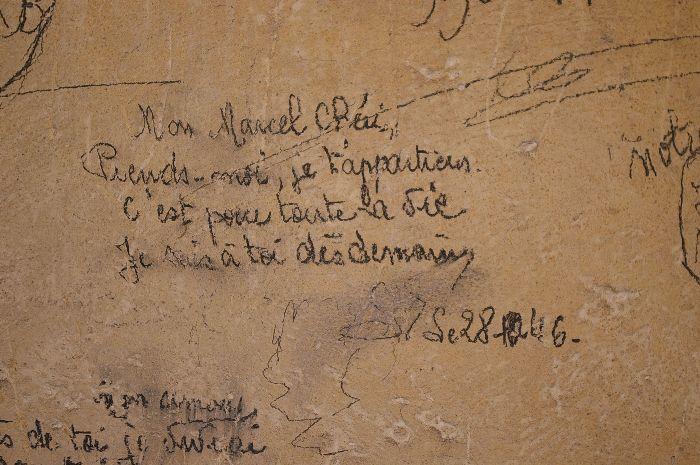 Mon Marcel Chéri,
Prends-moi, je t'appartiens.
C'est pour toute la vie
Je suis à toi dès demain,
Le 28 46-
Noti
de toi je suivrai